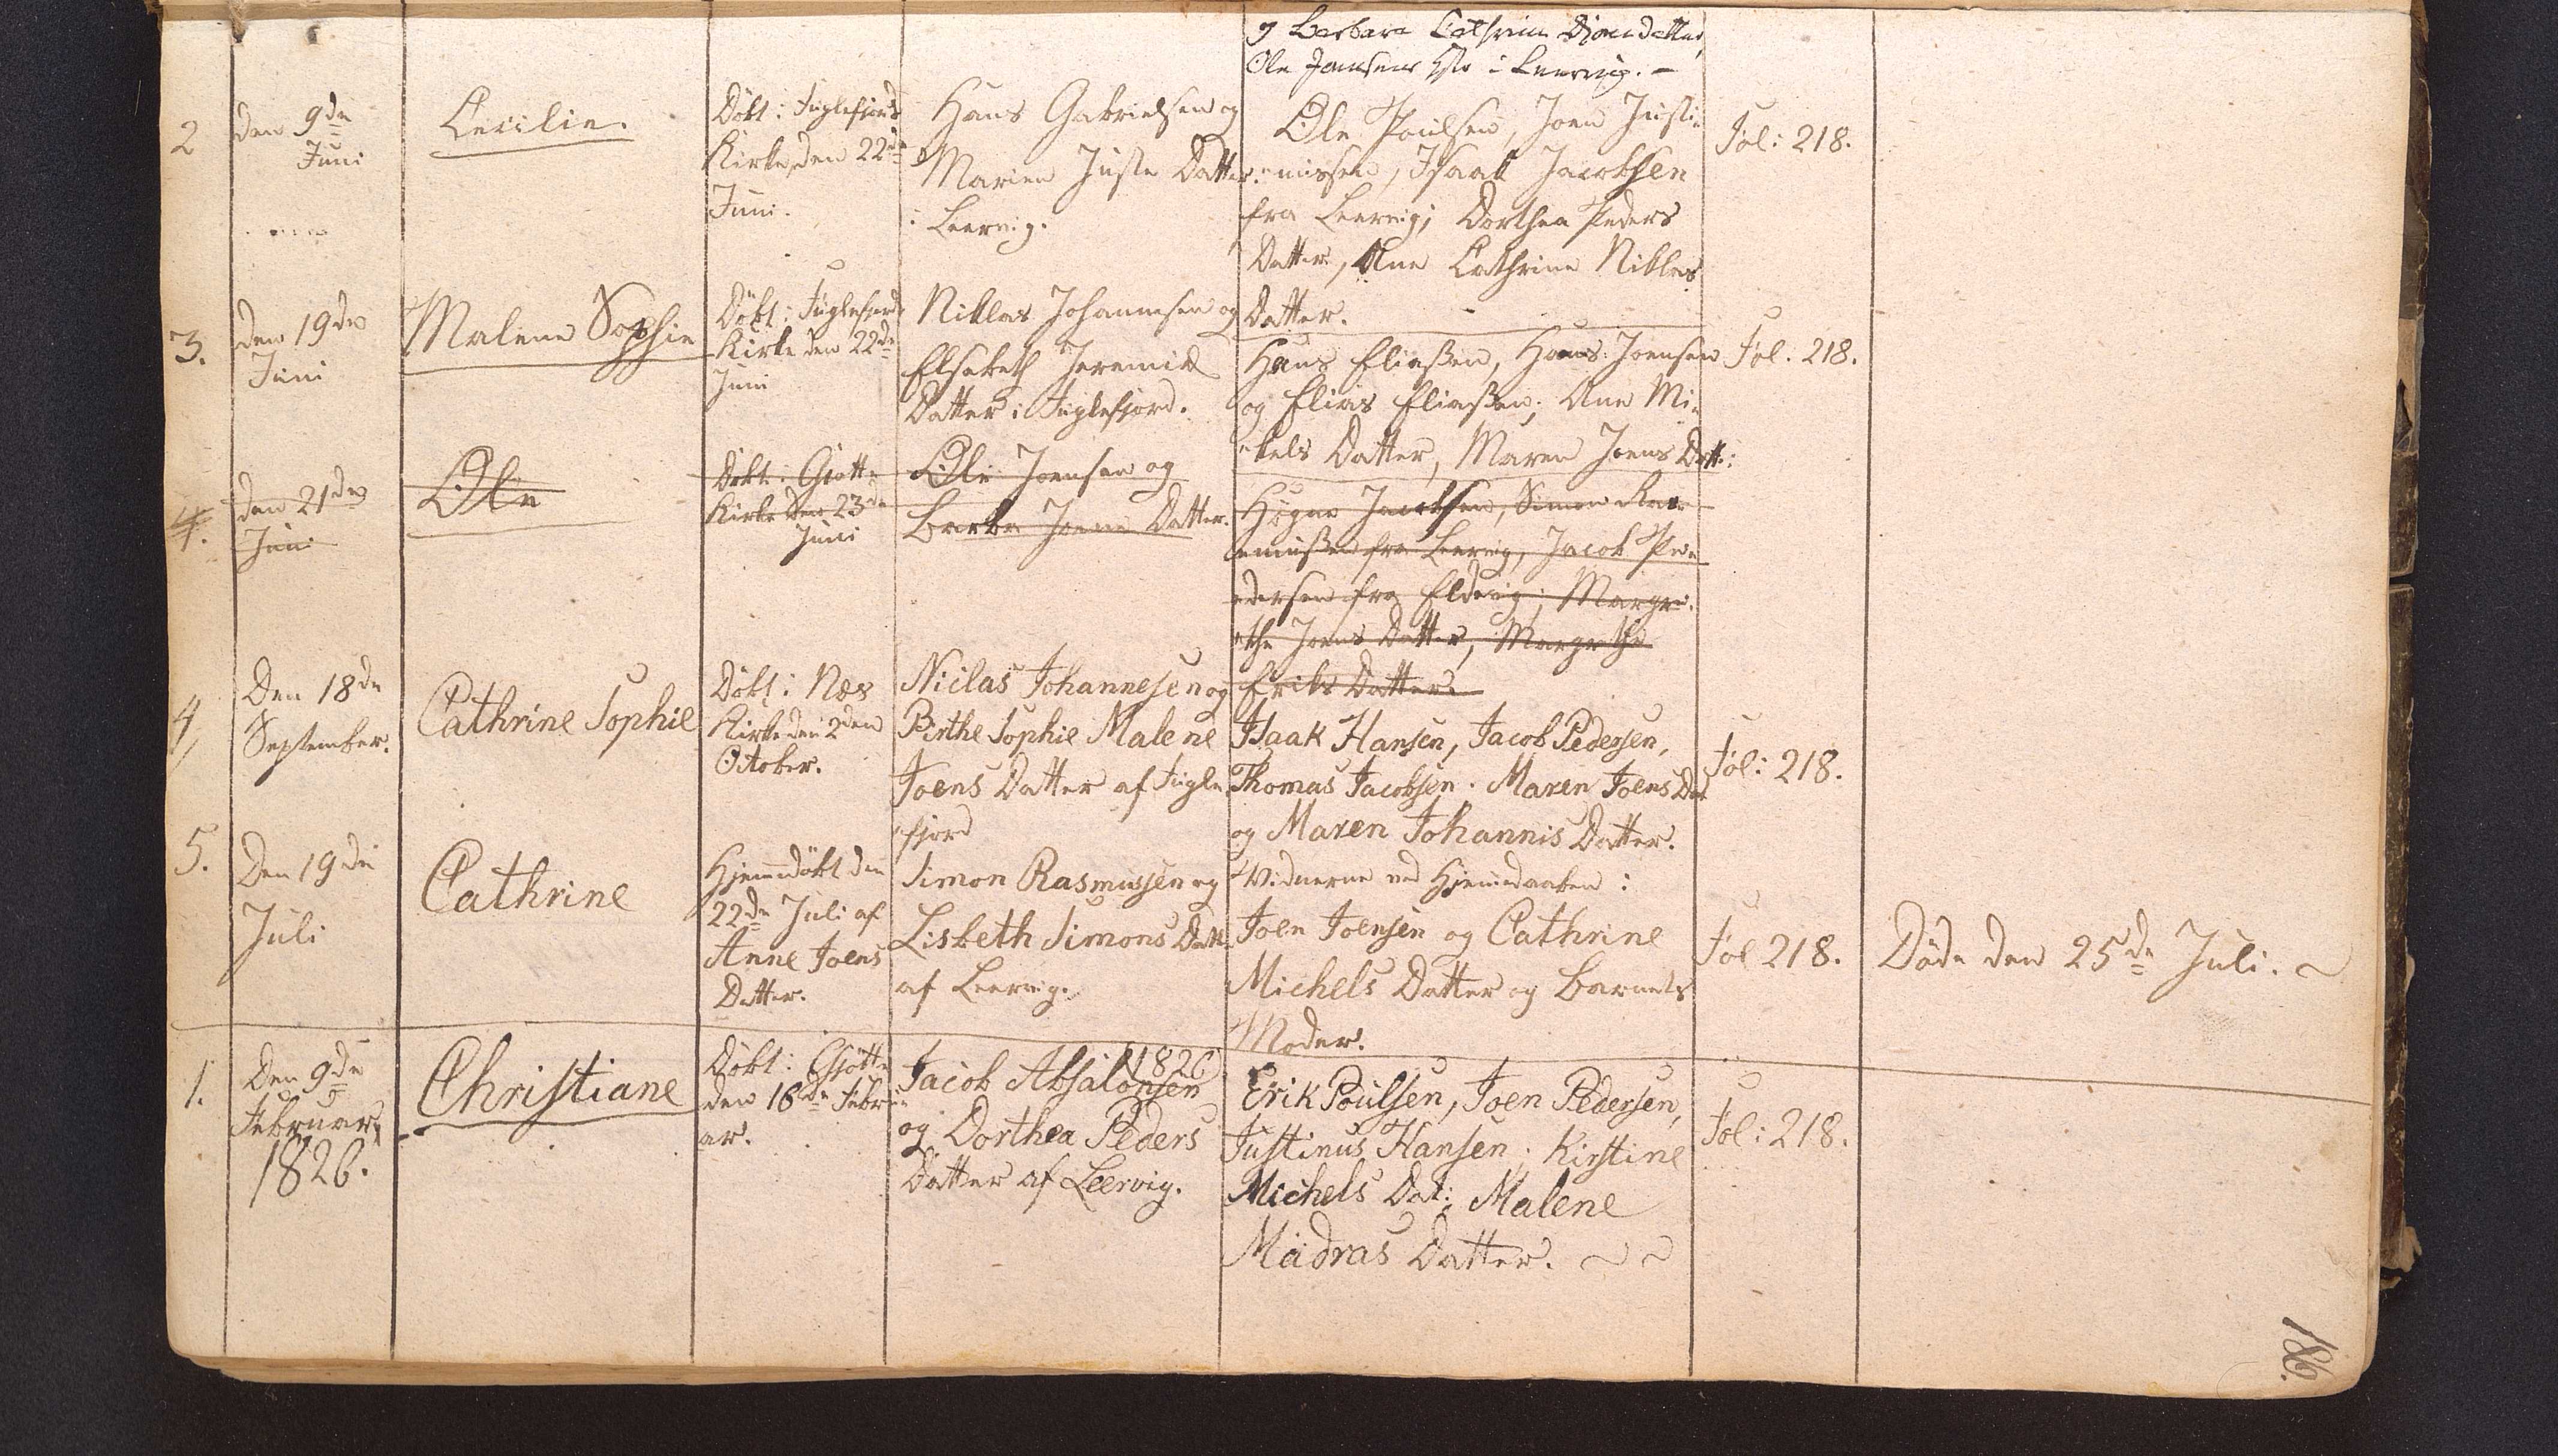 og Barbara Cathrine Djonedatter,
Ole Jansens i Leervig. –
2
den 9de
Juni
Cecilie.
Döbt: Fuglefjords
Kirke, den 22de
Juni.
Hans Gabrielsen og
Marien Juste Datter
i Leervig.
Ole Poulsen, Joen Justi-
nussen, Isaak Jacobsen
fra Leervig; Dorthea Peders
Datter, Ane Cathrine Niklas
Datter.
Fol: 218.
3.
den 19de
Juni
Malene Sophie
Döbt: Fuglefjords
Kirke den 22de
Juni
Niklas Johannesen og
Elsebeth Jeremiæ
Datter i Fuglefjord.
Hans Eliaßen, Hans Joensen
og Elias Eliaßen; Ane Mi-
kels Datter, Maren Joens Datt:
Fol. 218.
4.
den 21de
Juni
Ole
Döbt: Gjotte
Kirke den 23de
Juni
Ole Joensen og
Barbra Joens Datter.
Högne Jacobsen, Simon Ras-
mußen fra Leervig, Jacob Pe-
dersen fra Eldevig; Margre-
the Joens Datter, Margrethe
Eriks Datter.
4,
Den 18de
September.
Cathrine Sophie
Döbt: Næs
Kirke den 2den
October.
Niclas Johannesen og
Birthe Sophie Malene
Joens Datter af Fugle-
fjord
Isaak Hansen, Jacob Pedersen,
Thomas Jacobsen. Maren Joens Dat
og Maren Johannis Datter.
Fol: 218.
5.
Den 19de
Juli
Cathrine
Hjemmedöbt den
22de Juli af
Anne Joens
Datter.
Simon Rasmussen og
Lisbeth Simons Datt.
af Leervig.
Vidnerne ved Hjemmedaaben:
Joen Joensen og Cathrine
Michels Datter og Barnets
Moder.
Fol 218.
Döde den 25de Juli.
1826
1.
Den 9de
Februar
1826.
Christiane
Döbt: Gjötte
den 16de Febru-
ar.
Jacob Absalonsen
og Dorthea Peders
Datter af Leervig.
Erik Poulsen, Joen Pedersen,
Justinus Hansen; Kirstine
Michels Dat: Malene
Madras Datter.
Fol: 218.
186.